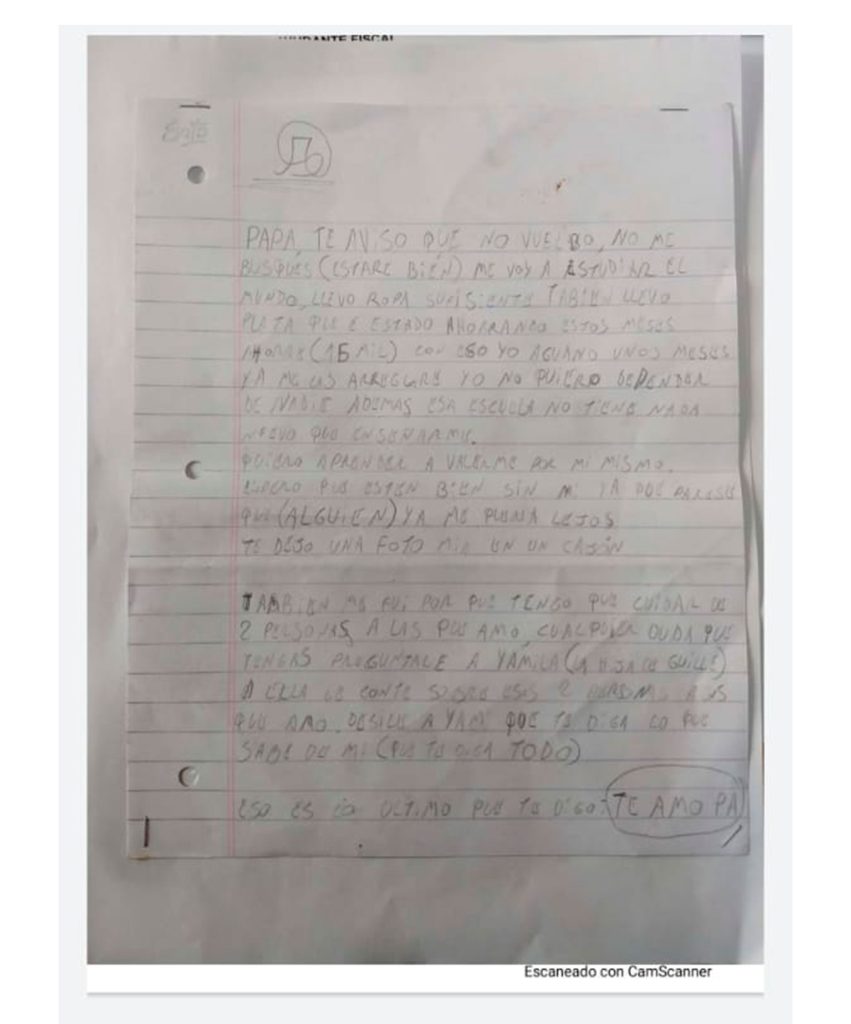 AYUDANTE FISCAL
PAPA, TE AVISO QUE NO VUELBO, NO ME
BUSQUES (ESTARE BIEN) ME VOY A ESTUDIAR EL
MUNDO, LLEVO ROPA SUFISIENTE TABIEN LLEVO
PLATA QUE E ESTADO AHORRANDO ESTOS MESES
(15 MIL) CON ESO YO AGUANO UNOS MESES
YA ME LAS ARREGLARE YO NO QUIERO DEPENDER
DE NADIE ADEMAS ESA ESCUELA NO TIENE NADA
NUEVO QUE ENSEÑARME.
QUIERO APRENDER A VALERME POR MI MISMO.
ESPERO QUE ESTEN BIEN SIN MI YA QUE PARESE
QUE (ALGUIEN) YA ME QUERIA LEJOS
TE DEJO UNA FOTO MIA EN UN CAJÓN
TAMBIEN ME FUI POR QUE TENGO QUE CUIDAR DE
2 PERSONAS A LAS QUE AMO, CUALQUIER DUDA QUE
TENGAS PREGUNTALE A YAMILA (LA HIJA DE GUILLE)
A ELLA LE CONTE SOBRE ESAS 2 PERSONAS A LAS
QUE AMO. DESILE A YAMI QUE TE DIGA LO QUE
SABE DE MI (QUE TE DIGA TODO)
ESO ES LO ULTIMO QUE TE DIGO: TE AMO PA
Escaneado con CamScanner